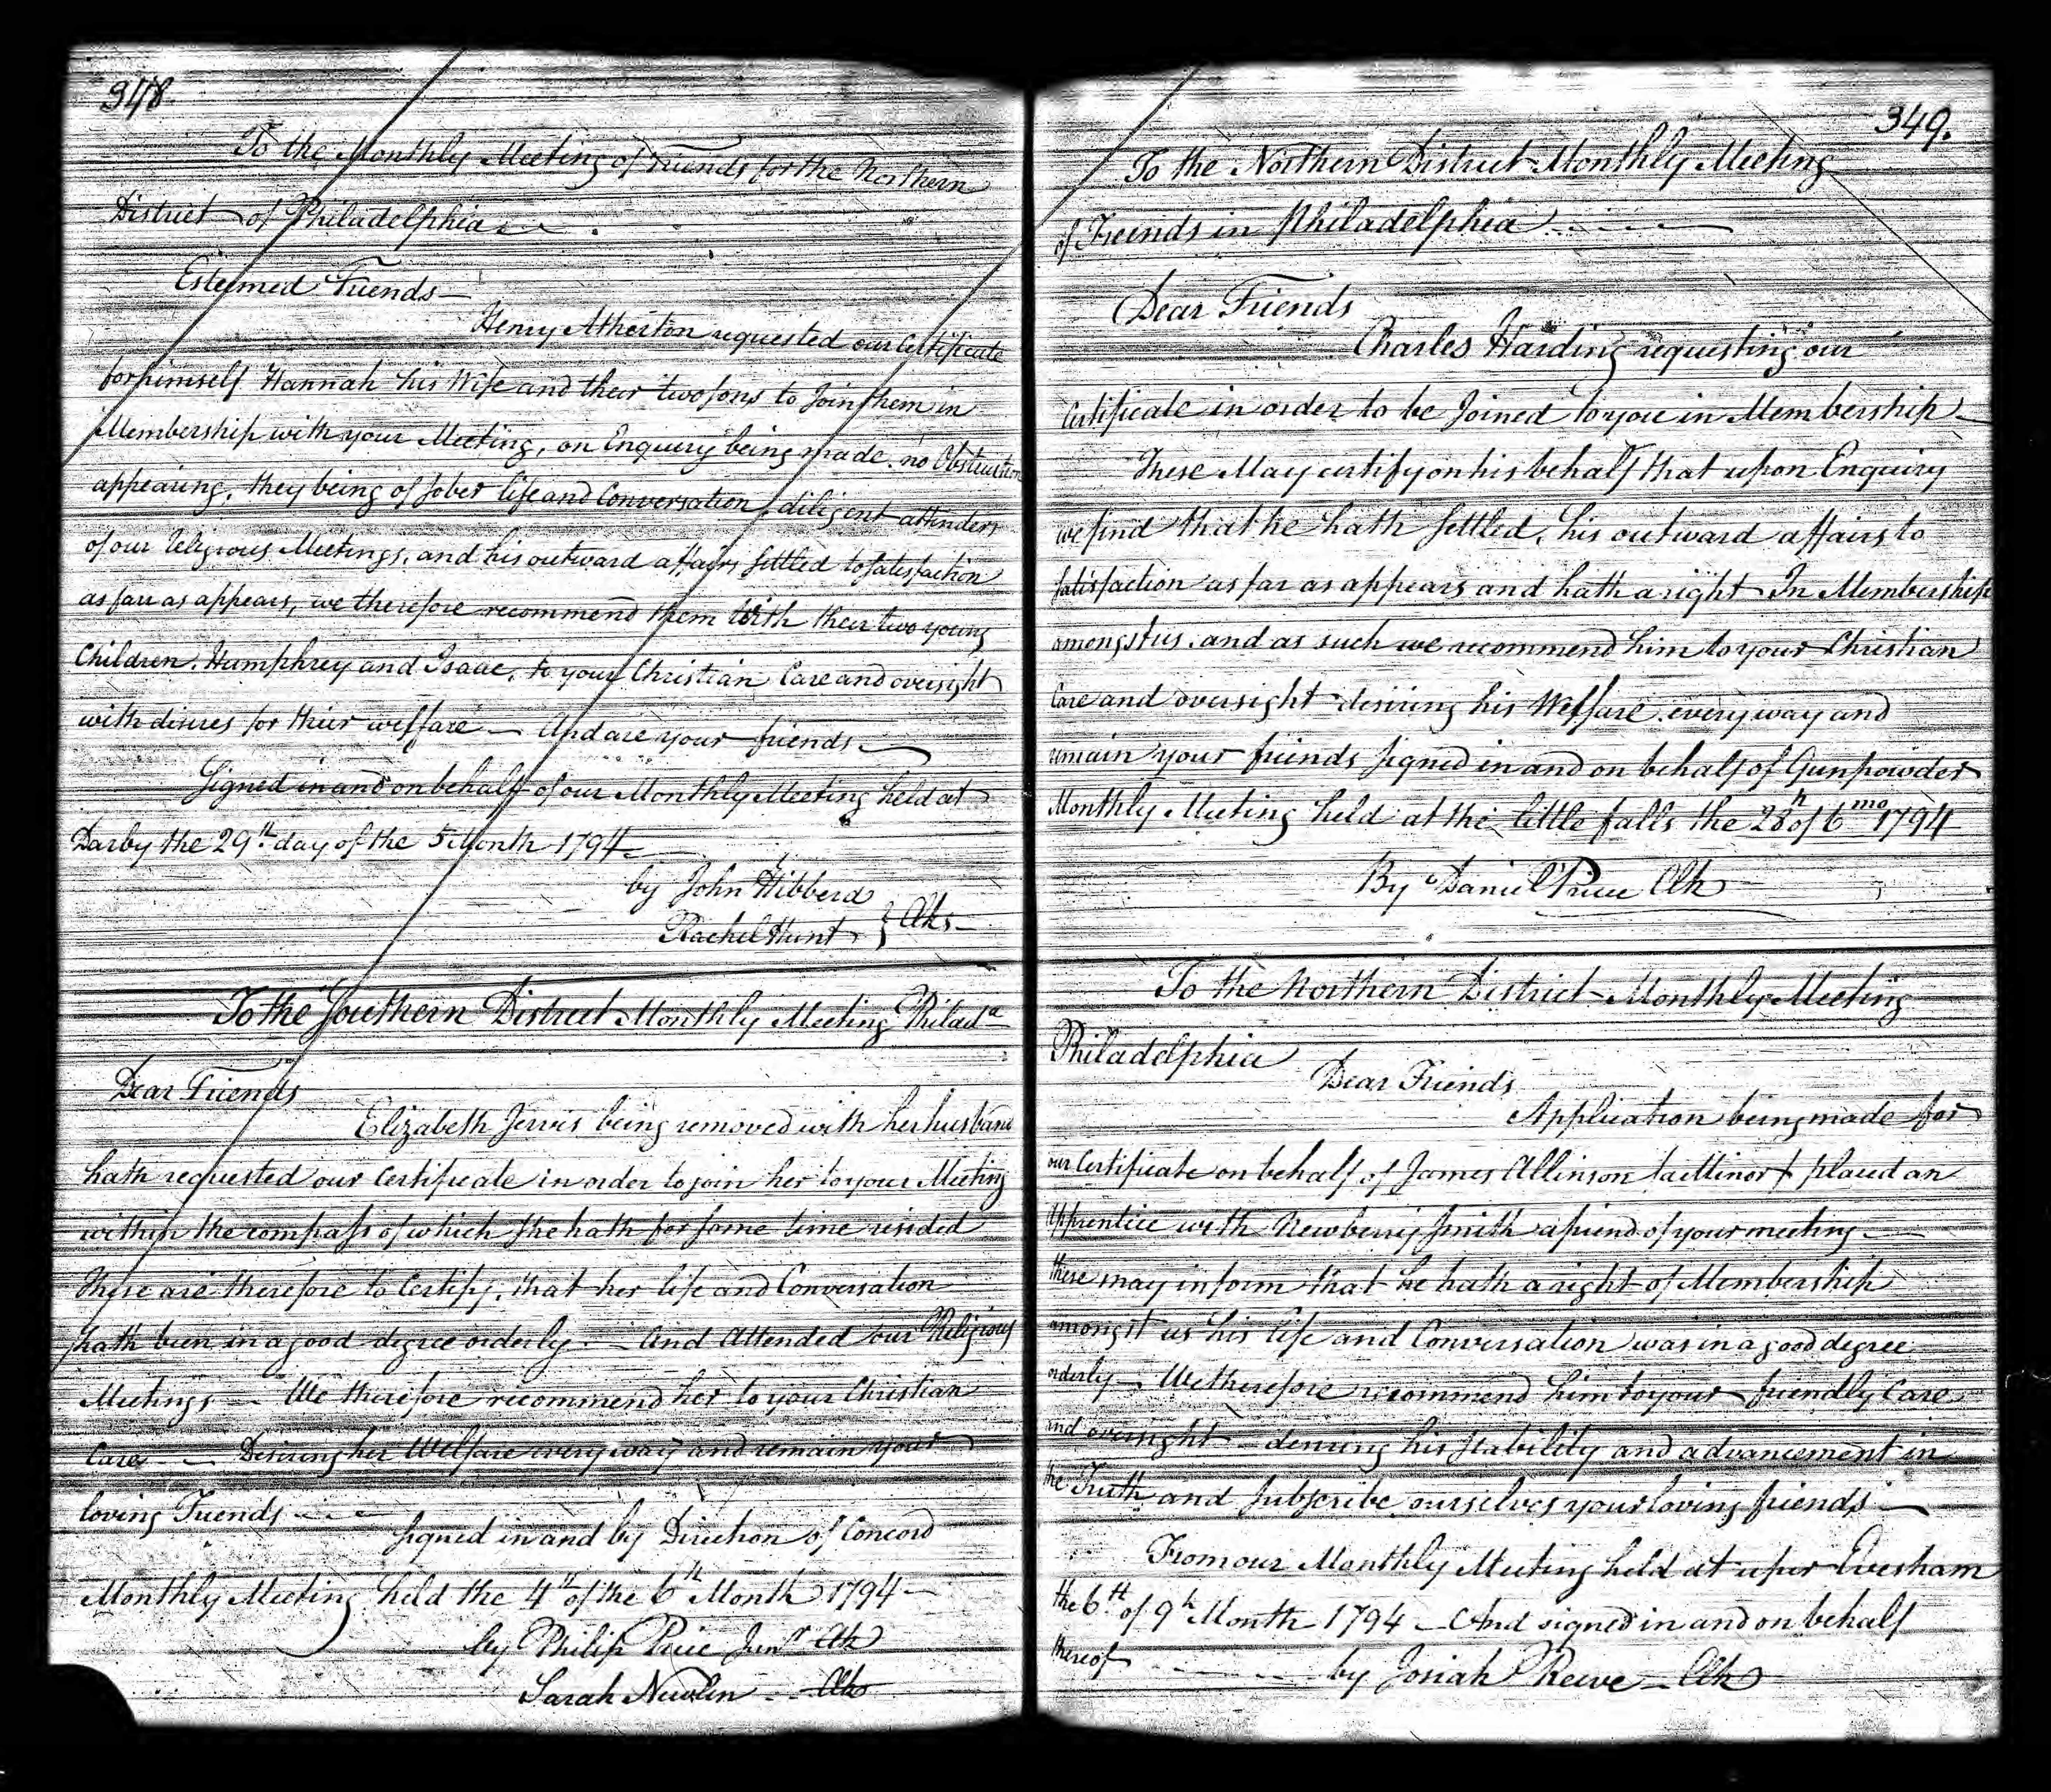 348
To the Monthly Meeting of Friends for the Northern
District of Philadelphia
Esteemed Friends
Henry Atherton requested our Certificate
for himself Hannah his Wife and their two sons to Join them in
Membership with your Meeting, on Enquiry being made no Obstruction
appearing, they being of sober life and Conversation, diligent attenders
of our religious Meetings, and his outward affairs settled to satisfaction
as farr as appears, we therefore recommend them with their two young
Children, Humphrey and Isaac, to your Christian Care and oversight
with disires for thier welfare — And are your friends
Signed in and on behalf of our Monthly Meeting held at
Darby the 29th day of the 5 Month 1794
by John Hibberd
Rachel Hunt } Clks
To the Southern District Monthly Meeting Philada
Dear Friends
Elizabeth Jervis being removed with her husband
hath requested our Certificate in order to join her to your Meeting
within the compass of which she hath for some time resided
These are therefore to Certify, that her life and Conversation
hath been in a good degree orderly — And Attended our Religious
Meetings — We therefore recommend her to your Christian
Care — Desiring her Welfare every way and remain your
loving Friends
Signed in and by Direction of Concord
Monthly Meeting held the 4th of the 6th Month 1794
by Philip Price Junr Clk
Sarah Newlin Clk
349.
To the Northern District Monthly Meeting
of Friends in Philadelphia
Dear Friends
Charles Harding requesting our
Certificate in order to be Joined to you in Membership
These May certify on his behalf that upon Enquiry
we find that he hath settled, his outward affairs to
satisfaction as far as appears and hath a right In Membership
amongst us. and as such we recommend him to your Christian
Care and oversight desiring his Welfare every way and
remain your friends signed in and on behalf of Gunpowder
Monthly Meeting held at the little falls the 28h of 6mo 1794
By Daniel Price Clk
To the Northern District Monthly Meeting
Philadelphia
Dear Friends
Application being made for
our Certificate on behalf of James Allinson (a Minor) placed an
Apprentice with Newberry Smith a friend of your meeting
these may inform that he hath a right of Membership
amongst us his life and Conversation was in a good degree
orderly — We therefore recommend him to your friendly Care
and oversight desiring his stability and advancement in
the Truth and subscribe ourselves your loving friends
From our Monthly Meeting held at uper Evesham
the 6th of 9h Month 1794 — And signed in and on behalf
thereof by Josiah Reeve — Clk